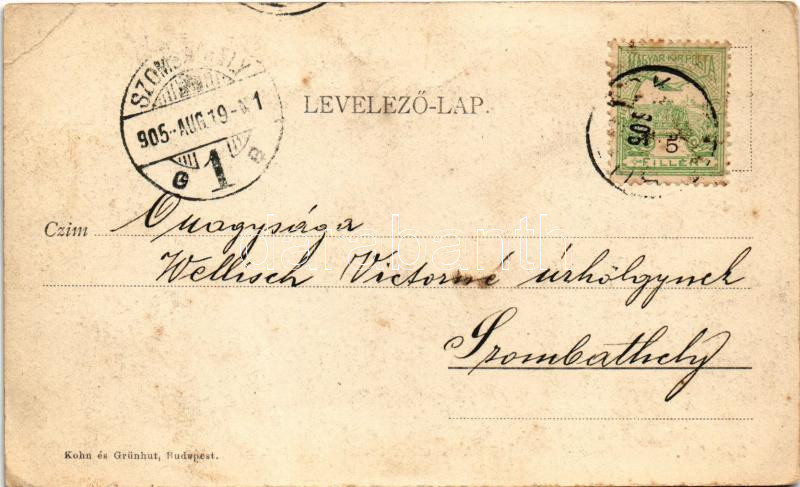 SZOMBATHELY
905 AUG 19 N 1
1
LEVELEZŐ-LAP.
MAGYAR KIR. POSTA
905
FILLÉR
Czim
Őnagysága
Wellisch Victorné úrhölgynek
Szombathely
darabanth
Kohn és Grünhut, Budapest.